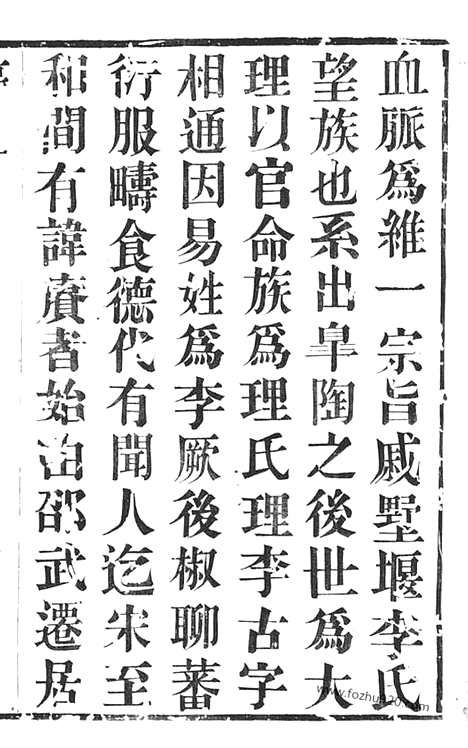 血脈爲維一宗旨戚墅堰李氏
望族也系出臯陶之後世爲大
理以官命族爲理氏理李古字
相通因易姓爲李厥後椒聊蕃
衍服疇食德代有聞人迄宋至
和間有諱賡者始由邵武遷居
www.fozhu920.com